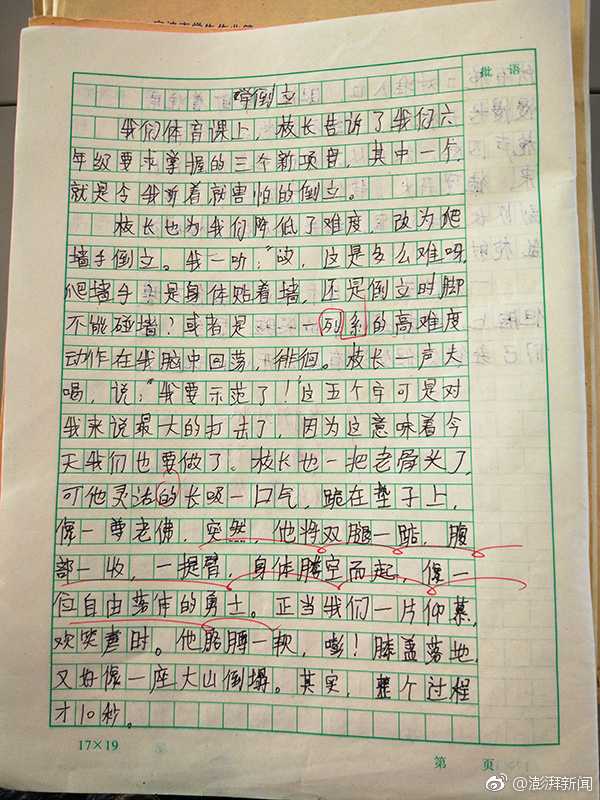 批 语
学倒立
我们体育课上，校长告诉了我们六
年级要求掌握的三个新项目，其中一个，
就是令我听着就害怕的倒立。
校长也为我们降低了难度，改为爬
墙手倒立。我一听：“哎，这是多么难呀，
爬墙手？是身体贴着墙，还是倒立时脚
不能碰墙？或者是……一列系的高难度
动作在我脑中回荡，徘徊。校长一声大
喝，说：“我要示范了！”这五个字可是对
我来说最大的打击了，因为这意味着今
天我们也要做了。校长也一把老骨头了，
可他灵活的长吸一口气，跪在垫子上，
像一尊老佛，突然，他将双腿一踮，腹
部一收，一提臂，身体腾空而起，像一
位自由落体的勇士。正当我们一片仰慕，
欢笑声时。他胳膊一软，嘭！膝盖落地，
又好像一座大山倒塌。其实，整个过程
才10秒。
17×19
第 页
@澎湃新闻